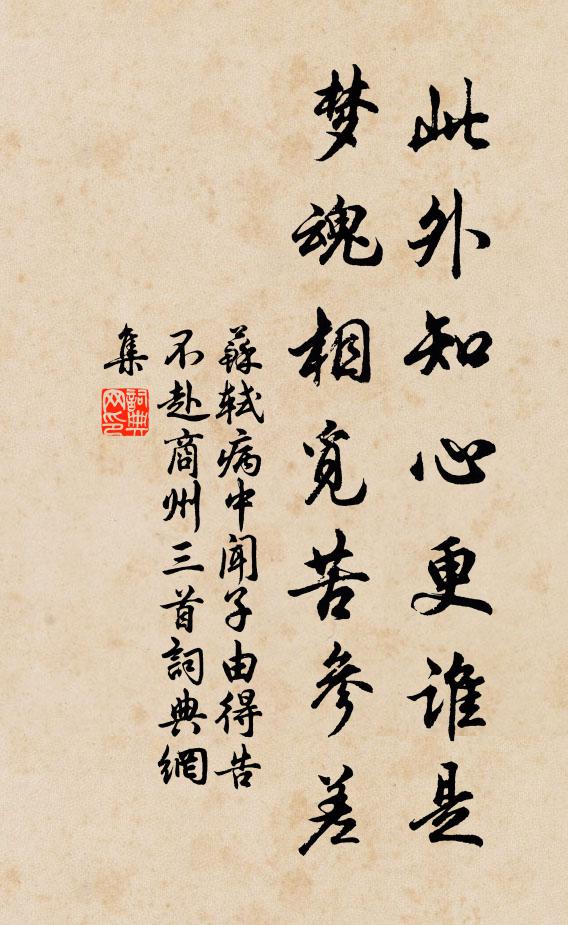 此外知心更谁是
梦魂相觅苦参差
蘇轼病中闻子由得告
不赴商州三首詞典網
集
詞典网印